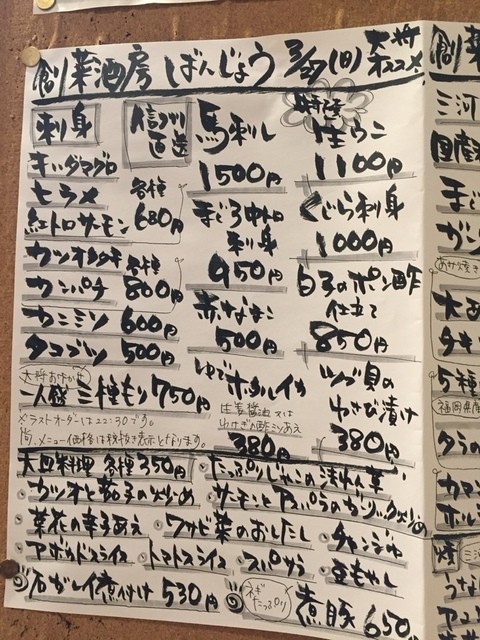 創菜酒房 ばんじょう 3/27(日) 大将オススメ
刺身
信づり直送
キハダマグロ
ヒラメ
紅トロサーモン
各種
680円
カツオタタキ
カンパチ
各種
800円
カニミソ 600円
タコブツ 500円
一人盛 三種もり 750円
※ラストオーダーは22:30です。
尚、メニュー価格は税抜き表示となります。
馬刺し
1500円
まぐろ中トロ
刺身
950円
赤なまこ
500円
ゆでホタルイカ
生姜醤油又は
わさび酢ミソあえ
380円
時価
生ウニ
1100円
くじら刺身
1000円
白子のポン酢
仕立て
850円
ツブ貝の
わさび漬け
380円
大皿料理 各種 350円
・たっぷりじゃこのほうれん草
・カツオと茄子の炒め
・サーモンとアスパラのガーリック炒め
・菜花の辛子あえ
・ワサビ菜のおしたし
・チャンジャ
・アボカドスライス
・トマトスライス
・スパサラ
・豆もやし
石ガレイ煮付け 530円
ネギたっぷり
煮豚 650
創菜
三河
国産
まぐ
ガン
大西
タキ
5種
福岡県産
タラの
カマン
ホル
焼
三河
うな